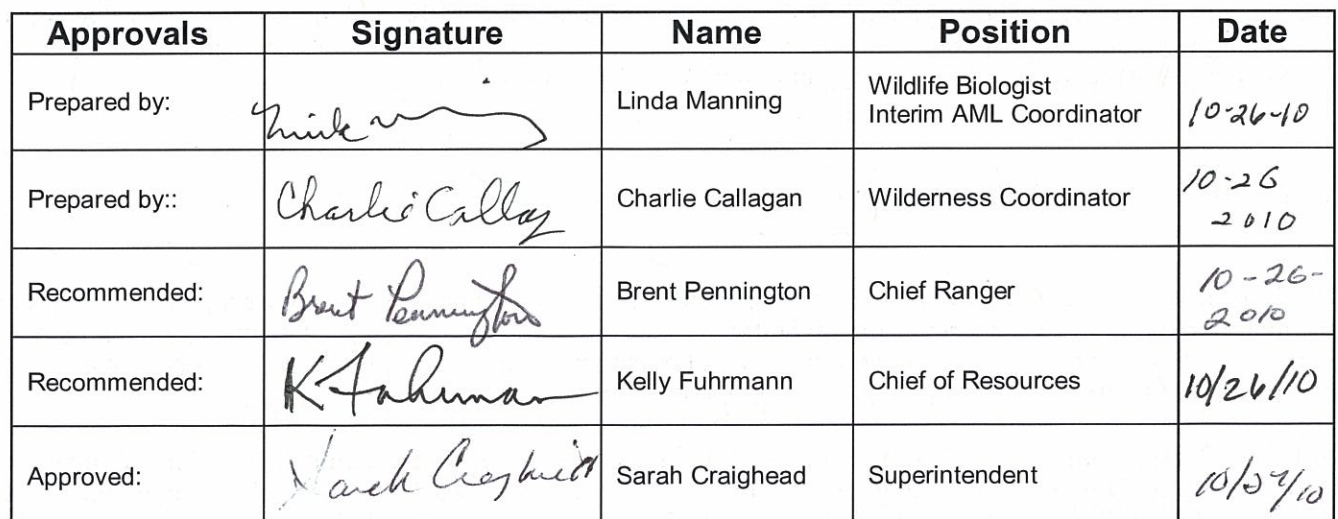 Approvals Signature Name Position Date
Prepared by: Linda Manning Wildlife Biologist
Interim AML Coordinator 10-26-10
Prepared by:: Charlie Callagan Charlie Callagan Wilderness Coordinator 10-26
2010
Recommended: Brent Pennington Brent Pennington Chief Ranger 10-26-
2010
Recommended: K Fuhrmann Kelly Fuhrmann Chief of Resources 10/26/10
Approved: Sarah Craighead Sarah Craighead Superintendent 10/27/10